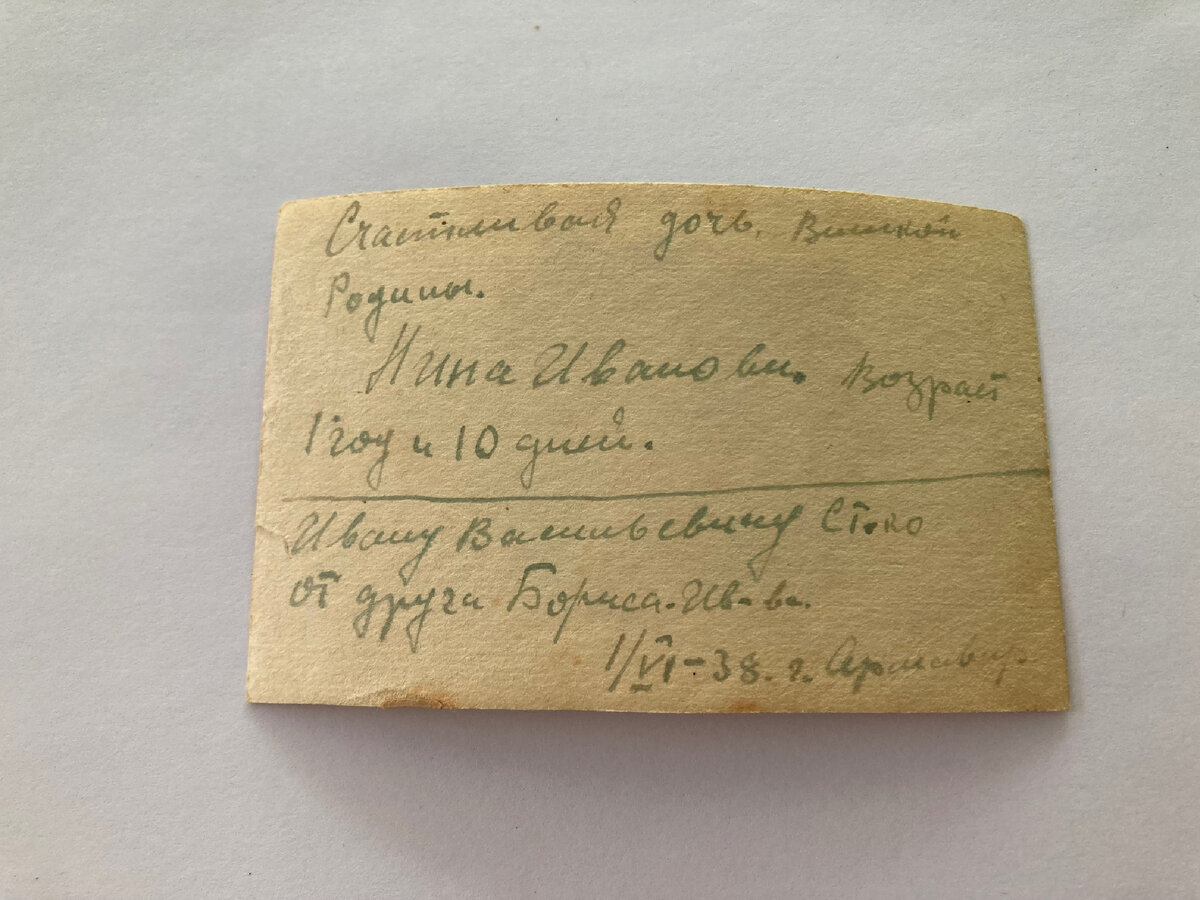 Счастливая дочь Великой
Родины.
Нина Ивановн. Возраст
1 год и 10 дней.
Ивану Васильевичу Ст.ко
от друга Бориса. Ив-ва.
1/VI-38. г. Армавир.